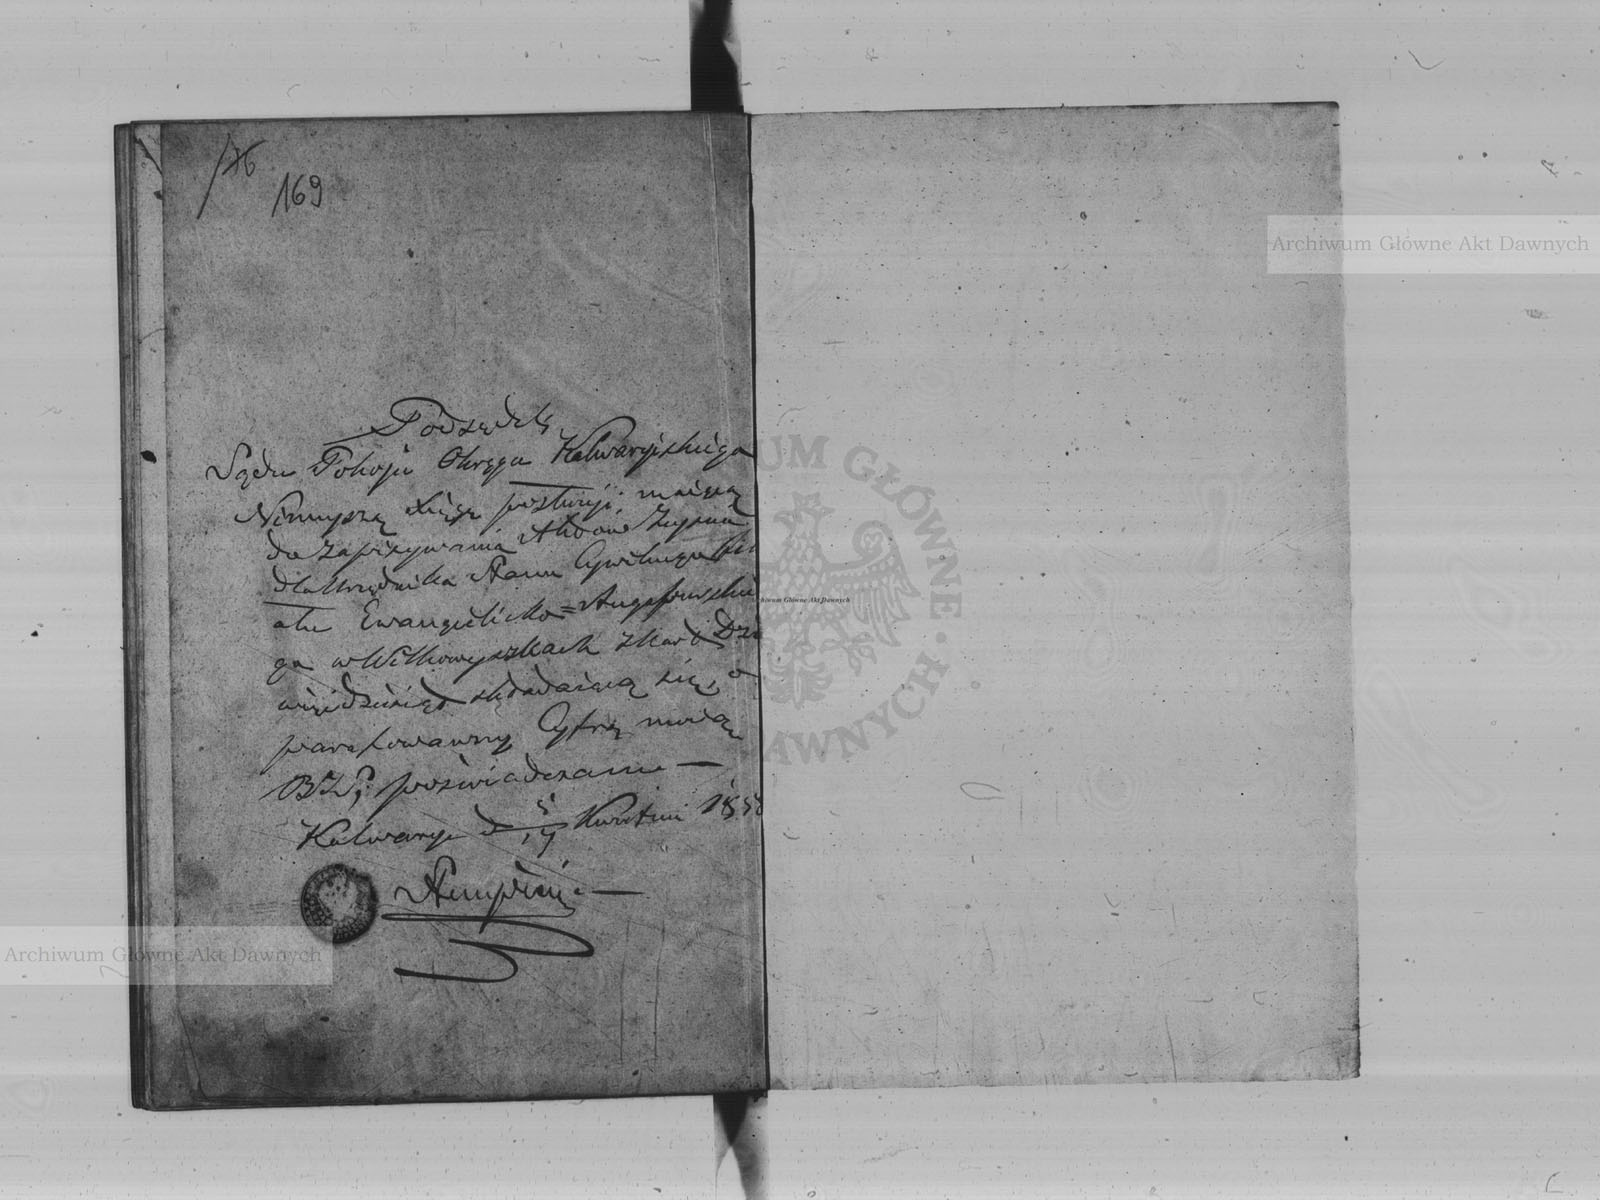 176
169
Podsędek
Sądu Pokoju Okręgu Kalwaryjskiego
Niniejszą Xięgę
do zapisywania Aktów
dla Urzędnika Stanu Cywilnego
Ewangelicko=Augsburskie
go w Wiłkowyszkach z kart Dzie
więćdziesiąt składaiącą się, a
parafowaną Cyfrą moią
poświadczam —
Kalwarya d 5/17 Kwietnia 185
Archiwum Główne Akt Dawnych
Archiwum Główne Akt Dawnych
Archiwum Główne Akt Dawnych
UM GŁÓWNE · AWNYCH ·